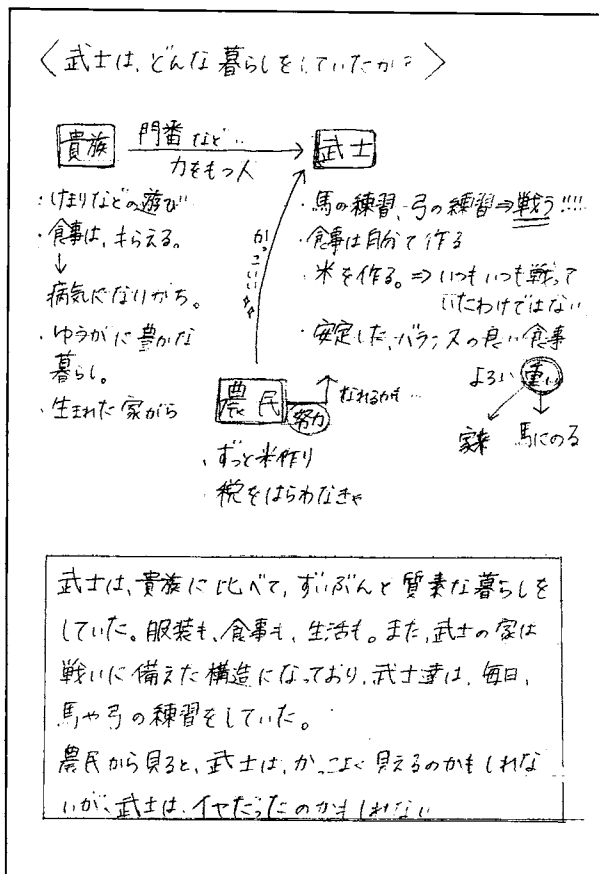 〈武士は、どんな暮らしをしていたか?〉
貴族
門番など…
力をもつ人
武士
・けまりなどの遊び
・食事は、きらえる。
↓
病気になりがち。
・ゆうがに豊かな
暮らし。
・生まれた家がら
かっこいい
・馬の練習、弓の練習⇒戦う!!!!
・食事は自分で作る
・米を作る。⇒いつもいつも戦って
いたわけではない
・安定した、バランスの良い食事
よろい 重い
家来 馬にのる
農民
努力
なれるかも…
・ずっと米作り
・税をはらわなきゃ
武士は、貴族に比べて、ずいぶんと質素な暮らしを
していた。服装も、食事も、生活も。また、武士の家は
戦いに備えた構造になっており、武士達は、毎日、
馬や弓の練習をしていた。
農民から見ると、武士は、かっこよく見えるのかもしれな
いが、武士は、イヤだったのかもしれない